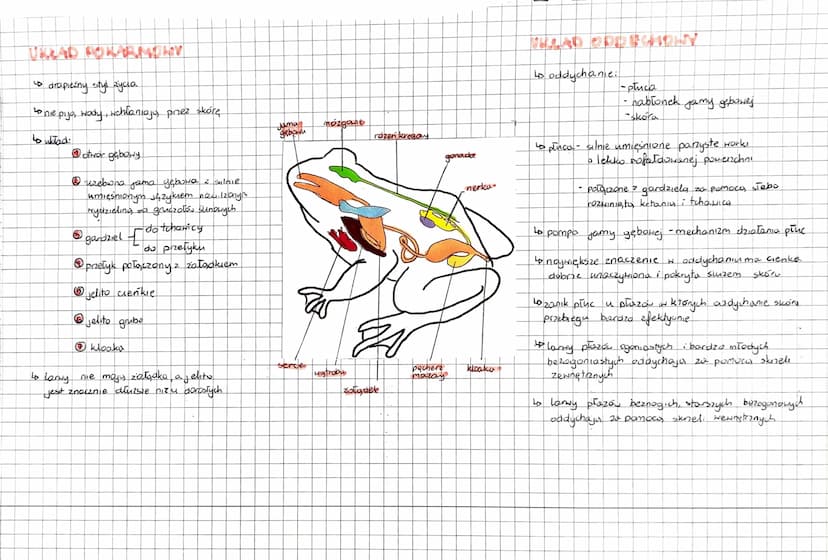 UKŁAD POKARMOWY
↳ drapieżny styl życia
↳ nie piją wody, wchłaniają przez skórę
↳ układ:
1 otwór gębowy
2 uzębiona jama gębowa z silnie
umięśnionym językiem nawilżanym
wydzieliną ze gruczołów ślinowych
3 gardziel do tchawicy
do przełyku
4 przełyk połączony z żołądkiem
5 jelito cienkie
6 jelito grube
7 kloaka
↳ larwy nie mają żołądka, a jelito
jest znacznie dłuższe niż u dorosłych
jama
gębowa
mózgowie
rdzeń kręgowy
gonada
nerka
serce
wątroba
żołądek
pęcherz
moczowy
kloaka
UKŁAD ODDECHOWY
↳ oddychanie:
- płuca
- nabłonek jamy gębowej
- skóra
↳ płuca - silnie umięśnione parzyste worki
o lekko pofałdowanej powierzchni
- połączone z gardzielą za pomocą słabo
rozwiniętą krtanią i tchawicą
↳ pompa jamy gębowej - mechanizm działania płuc
↳ największe znaczenie w oddychaniu ma cienka
dobrze unaczyniona i pokryta śluzem skóra
↳ zanik płuc u płazów w których oddychanie skórą
przebiega bardzo efektywnie
↳ larwy płazów ogoniastych i bardzo młodych
bezogoniastych oddychają za pomocą skrzeli
zewnętrznych
↳ larwy płazów beznogich, starszych bezogonowych
oddychają za pomocą skrzeli wewnętrznych